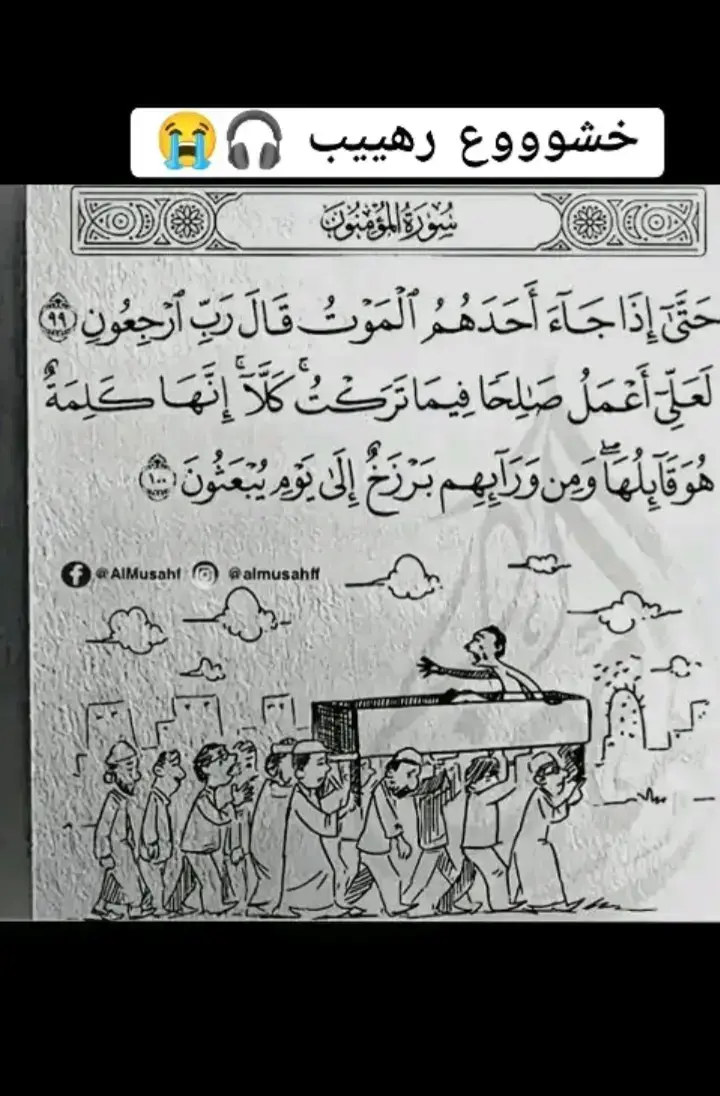 خشوووع رهييب 🎧😭
سُورَةُ المُؤْمِنُونَ
حَتَّىٰٓ إِذَا جَآءَ أَحَدَهُمُ ٱلْمَوْتُ قَالَ رَبِّ ٱرْجِعُونِ ٩٩
لَعَلِّىٓ أَعْمَلُ صَٰلِحًا فِيمَا تَرَكْتُ ۚ كَلَّآ ۚ إِنَّهَا كَلِمَةٌ
هُوَ قَآئِلُهَا ۖ وَمِن وَرَآئِهِم بَرْزَخٌ إِلَىٰ يَوْمِ يُبْعَثُونَ ١٠٠
@AlMusahf @almusahff